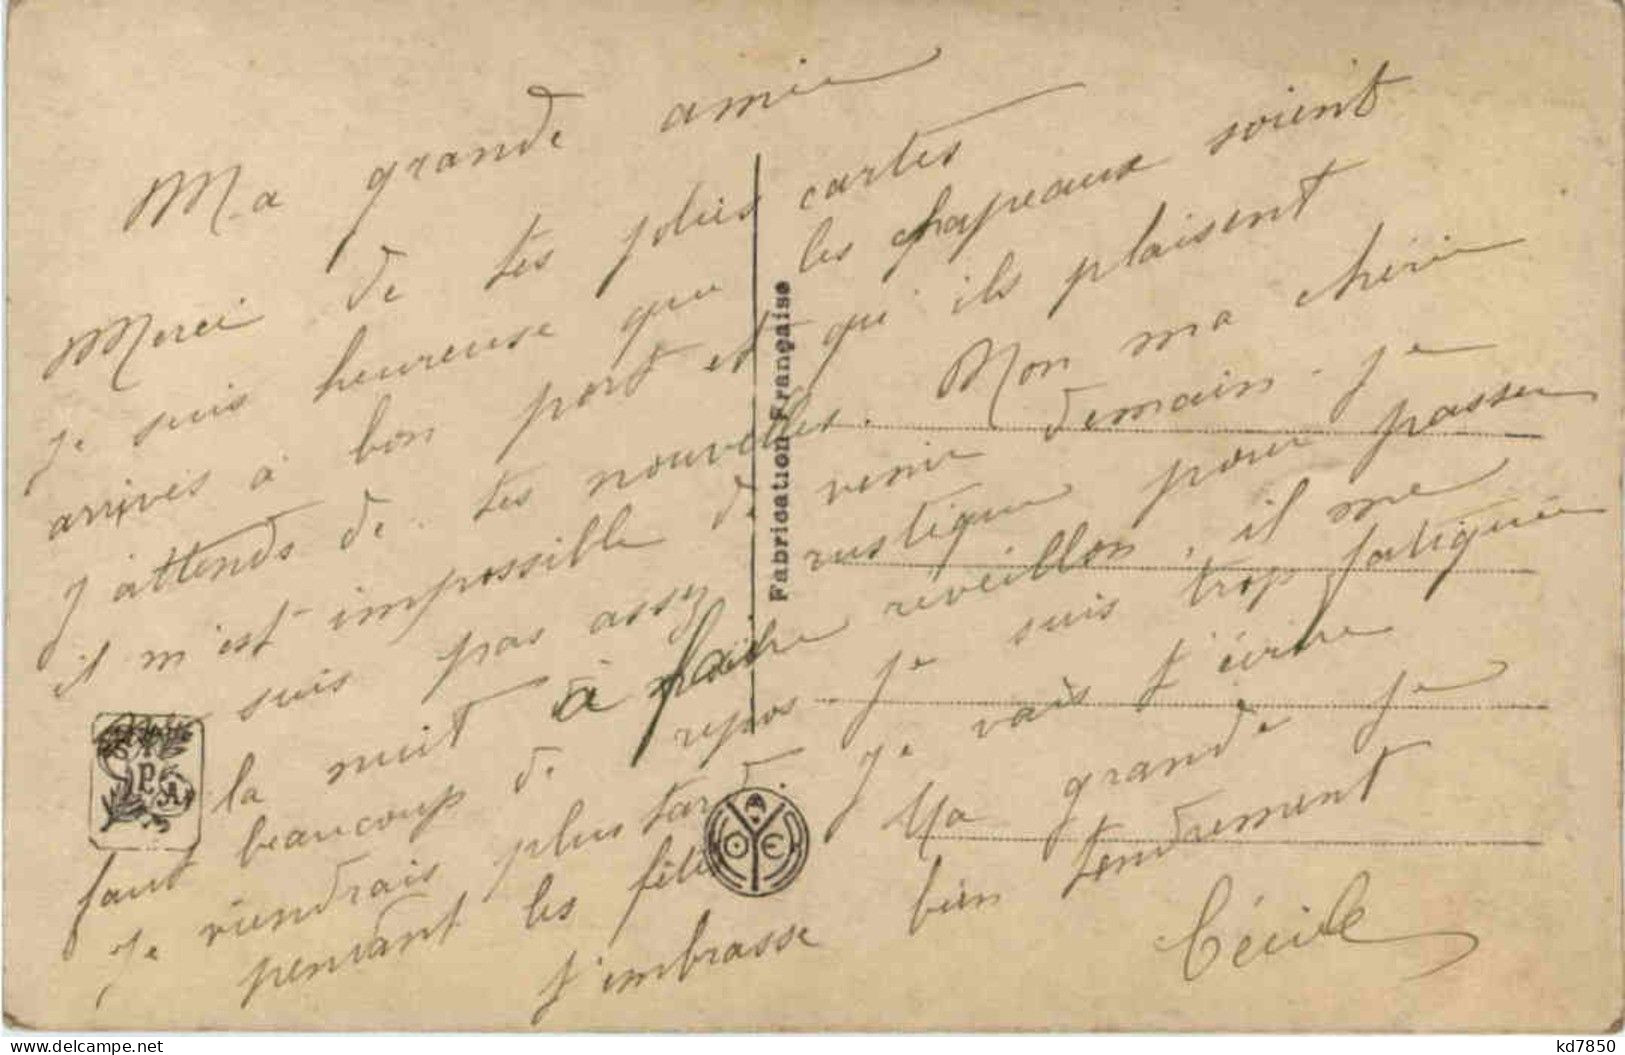 Ma grande amie
Merci de tes jolies cartes
je suis heureuse que les chapeaux soient
arrivés à bon port et qu'ils plaisent
J'attends de tes nouvelles. Non ma chérie
il m'est impossible de venir demain - je
suis pas assez rustique pour passer
la nuit à faire réveillon, il me
faut beaucoup de repos - je suis trop fatiguée
Je viendrais plus tard. Je vais t'écrire
pendant les fêtes Ma grande je
t'embrasse bien tendrement
Cécile
Fabrication Française
P A
kd7850